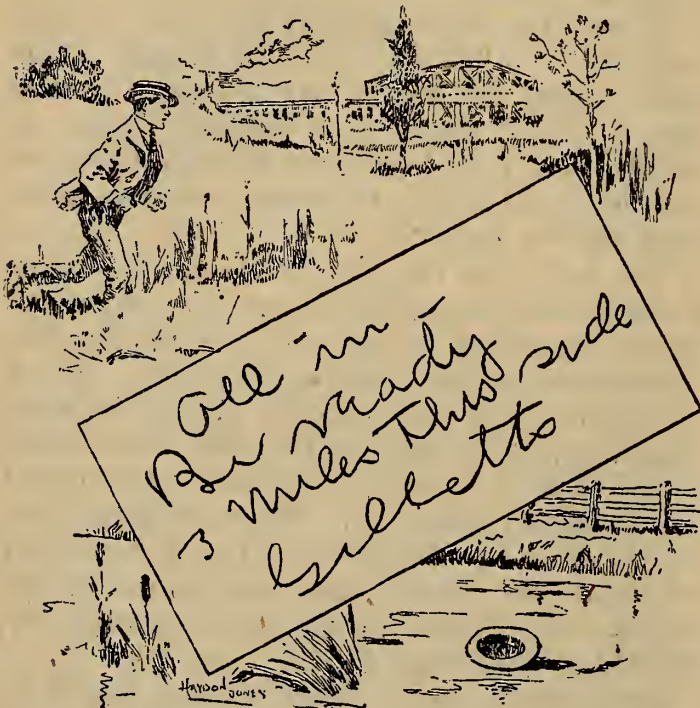 All in -
Be ready
3 miles this side
Gilletts
HAYDON
JONES